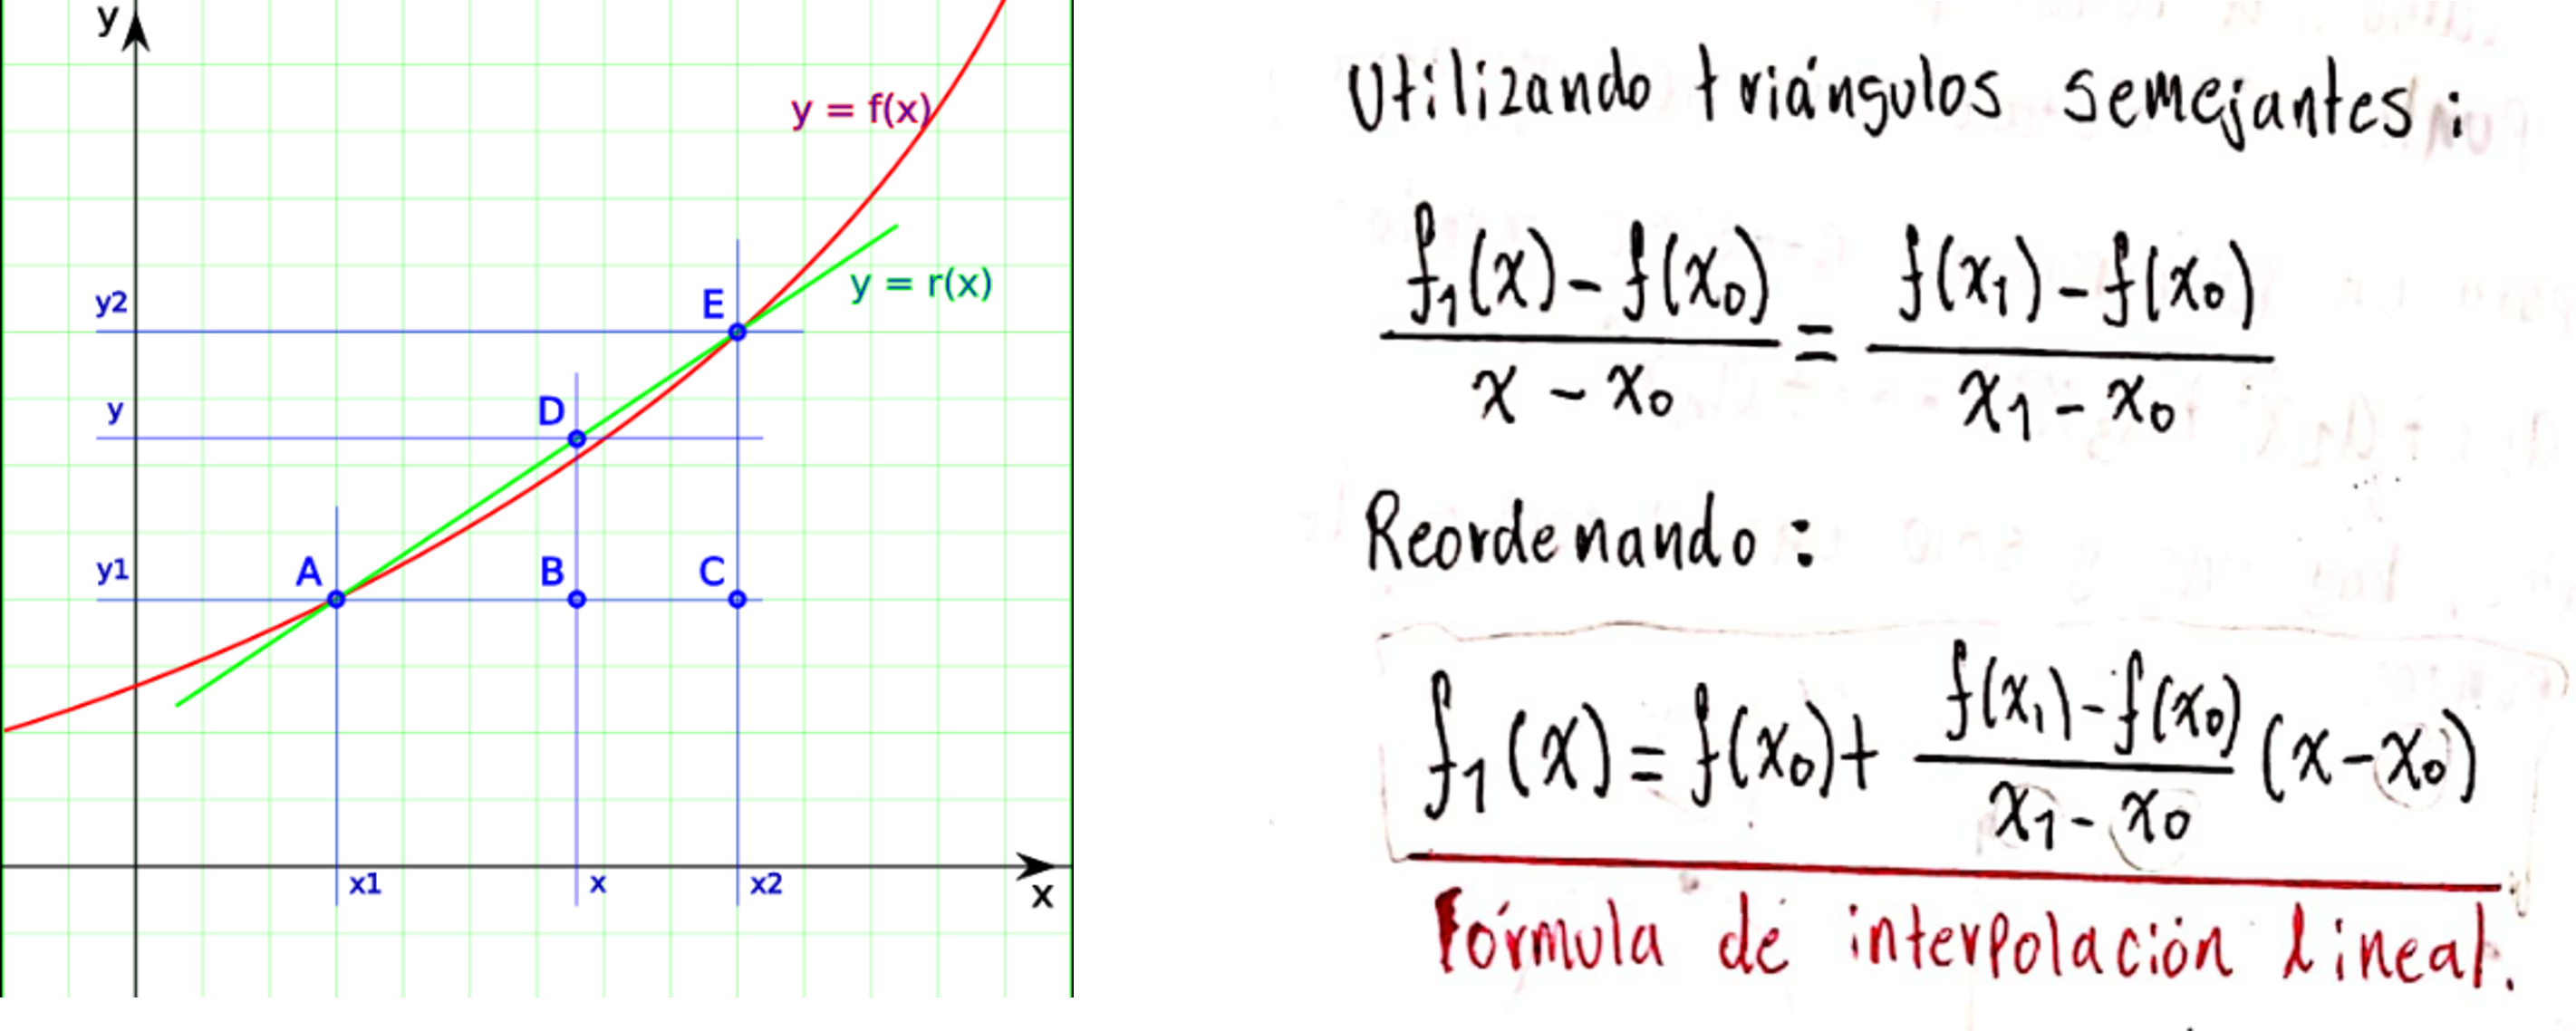 y
y = f(x)
y = r(x)
y2
E
y
D
y1
A
B
C
x1
x
x2
x
Utilizando triángulos semejantes:
f₁(x) - f(x₀) / x - x₀ = f(x₁) - f(x₀) / x₁ - x₀
Reordenando:
f₁(x) = f(x₀) + f(x₁) - f(x₀) / x₁ - x₀ (x - x₀)
Fórmula de interpolación lineal.